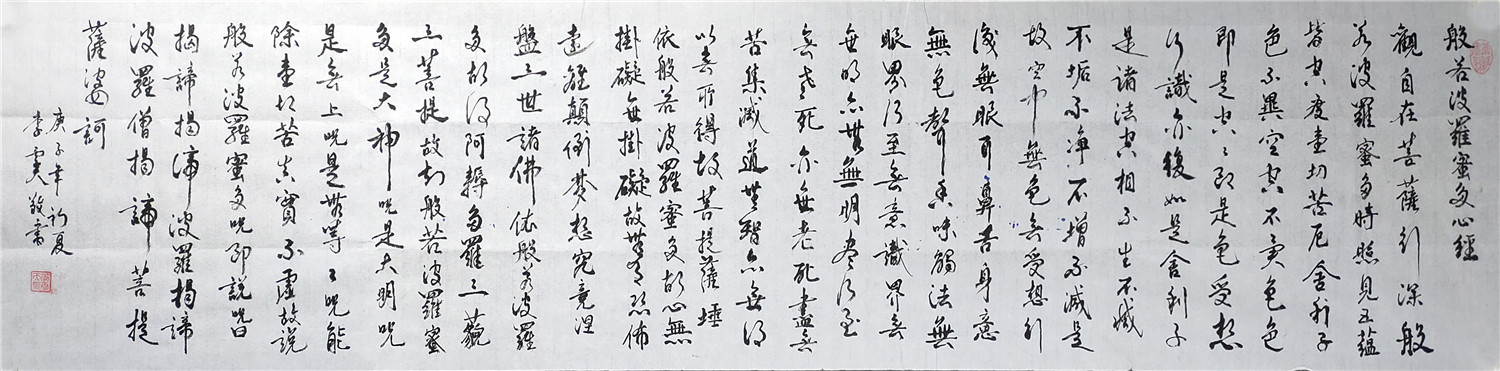 般若波羅蜜多心經
觀自在菩薩行深般
若波羅蜜多時照見五蘊
皆空度壹切苦厄舍利子
色不異空空不異色色
即是空々即是色受想
行識亦復如是舍利子
是諸法空相不生不滅
不垢不淨不增不減是
故空中無色無受想行
識無眼耳鼻舌身意
無色聲香味觸法無
眼界乃至無意識界無
無明亦無無明盡乃至
無老死亦無老死盡無
苦集滅道無智亦無得
以無所得故菩提薩埵
依般若波羅蜜多故心無
掛礙無掛礙故無有恐怖
遠離顛倒夢想究竟涅
盤三世諸佛依般若波羅
多故得阿耨多羅三藐
三菩提故知般若波羅蜜
多是大神咒是大明咒
是無上咒是無等々咒能
除壹切苦真實不虛故說
般若波羅蜜多咒即說咒曰
揭諦揭諦波羅揭諦
波羅僧揭諦菩提
薩婆訶
庚子年初夏
李敬書